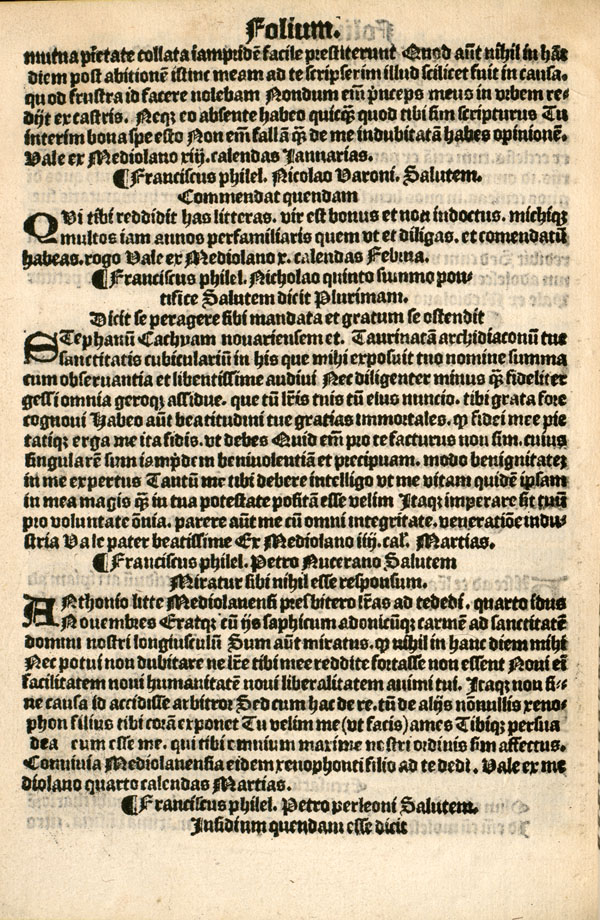 Folium.
mutua pīetate collata iampridē facile prestiterunt Quod aūt nihil in hāc
diem post abitionē istinc meam ad te scripserim illud scilicet fuit in causa.
quod frustra id facere nolebam Nondum em̄ p̄nceps meus in vrbem re-
dijt ex castris. Necꝫ eo absente habeo quicqꝫ quod tibi sim scripturus Tu
interim bona spe esto Non em̄ fallā q̄ꝫ de me indubitatā habes opinionē.
Vale ex Mediolano xiij. calendas Januarias.
¶ Franciscus philel. Nicolao Varoni. Salutem.
Commendat quendam
QVi tibi reddidit has litteras. vir est bonus et non indoctus. michiqꝫ
multos iam annos perfamiliaris quem vt et diligas. et comendatū
habeas. rogo Vale ex Mediolano x. calendas Februa.
¶ Franciscus philel. Nicholao quinto summo pon-
tifice Salutem dicit Plurimam.
Dicit se peragere sibi mandata et gratum se ostendit
STephanū Cachpam nouariensem et. Taurinatā archidiaconū tue
sanctitatis cubiculariū in his que mihi exposuit tuo nomine summa
cum obseruantia et libentissime audiui Nec diligenter minus q̄ꝫ fideliter
gessi omnia geroqꝫ assidue. que tū lr̄is tuis tū eius nuncio. tibi grata fore
cognoui Habeo aūt beatitudini tue gratias immortales. ꝙ fidei mee pie
tatiqꝫ erga me ita fidis. vt debes Quid em̄ pro te facturus non sim. cuius
singularē sum iampdem beniuolentiā et precipuam. modo benignitatez
in me expertus Tantū me tibi debere intelligo vt me vitam quidē ipsam
in mea magis q̄ꝫ in tua potestate positā esse velim Itaqꝫ imperare sit tuū
pro voluntate ōnia. parere aūt me cū omni integritate. veneratiōe indu-
stria Vale pater beatissime Ex Mediolano iiij. cal. Martias.
¶ Franciscus philel. Petro Nucerano Salutem
Miratur sibi nihil esse responsum.
ANthonio litte Mediolanensi presbitero lr̄as ad te dedi. quarto idus
Nouembres Eratqꝫ cū ijs saphicum adonicūqꝫ carmē ad sanctitatē
domini nostri longiusculū Sum aūt miratus. ꝙ nihil in hanc diem mihi
Nec potui non dubitare ne lr̄e tibi mee reddite fortasse non essent Noui em̄
facilitatem noui humanitatē noui liberalitatem animi tui. Itaqꝫ non si-
ne causa id accidisse arbitror Sed cum hac de re. tū de alijs nōnullis xeno-
phon filius tibi corā exponet Tu velim me (vt facis) ames Tibiqꝫ persua
dea cum esse me. qui tibi omnium maxime nostri ordinis sim affectus.
Conuiuia Mediolanensia eidem xenophonti filio ad te dedi. Vale ex me
diolano quarto calendas Martias.
¶ Franciscus philel. Petro perleoni Salutem.
Insidium quendam esse dicit